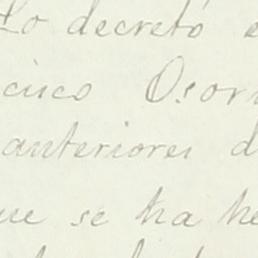 Lo decretó e
cisco Osor
anteriores d
ue se ha he